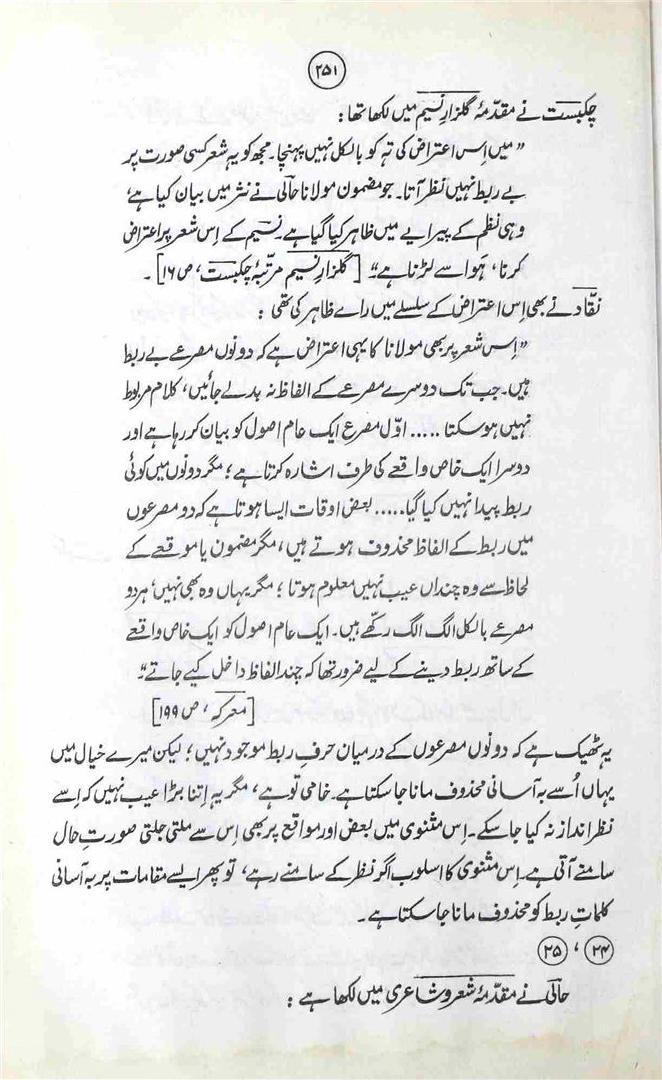 ۲۵۱
چکبست نے مقدّمۂ گلزارِ نسیم میں لکھا تھا :
”میں اِس اعتراض کی تہ کو بالکل نہیں پہنچا۔ مجھ کو یہ شعر کسی صورت پر
بے ربط نہیں نظر آتا۔ جو مضمون مولانا حالی نے نثر میں بیان کیا ہے،
وہی نظم کے پیرایے میں ظاہر کیا گیا ہے۔ نسیم کے اِس شعر پر اعتراض
کرنا، ہَوا سے لڑنا ہے“ [گلزارِ نسیم مرتّبۂ چکبست، ص ۱۶]۔
نقّاد نے بھی اِس اعتراض کے سلسلے میں راے ظاہر کی تھی :
”اِس شعر پر بھی مولانا کا یہی اعتراض ہے کہ دونوں مصرعے بے ربط
ہیں۔ جب تک دوسرے مصرعے کے الفاظ نہ بدلے جائیں، کلام مربوط
نہیں ہو سکتا ..... اوّل مصرع ایک عام اصول کو بیان کر رہا ہے اور
دوسرا ایک خاص واقعے کی طرف اشارہ کرتا ہے؛ مگر دونوں میں کوئی
ربط پیدا نہیں کیا گیا..... بعض اوقات ایسا ہوتا ہے کہ دو مصرعوں
میں ربط کے الفاظ محذوف ہوتے ہیں، مگر مضمون یا موقعے کے
لحاظ سے وہ چنداں عیب نہیں معلوم ہوتا؛ مگر یہاں وہ بھی نہیں، ہر دو
مصرعے بالکل الگ الگ رکھّے ہیں۔ ایک عام اصول کو ایک خاص واقعے
کے ساتھ ربط دینے کے لیے ضرور تھا کہ چند الفاظ داخل کیے جاتے“
[معرکہ، ص ۱۹۹]
یہ ٹھیک ہے کہ دونوں مصرعوں کے درمیان حرفِ ربط موجود نہیں؛ لیکن میرے خیال میں
یہاں اُسے بہ آسانی محذوف مانا جا سکتا ہے۔ خامی تو ہے، مگر یہ اِتنا بڑا عیب نہیں کہ اِسے
نظر انداز نہ کیا جا سکے۔ اِس مثنوی میں بعض اور مواقع پر بھی اِس سے ملتی جلتی صورتِ حال
سامنے آتی ہے۔ اِس مثنوی کا اسلوب اگر نظر کے سامنے رہے، تو پھر ایسے مقامات پر بہ آسانی
کلماتِ ربط کو محذوف مانا جا سکتا ہے۔
۲۴ ، ۲۵
حالی نے مقدّمۂ شعر و شاعری میں لکھا ہے :